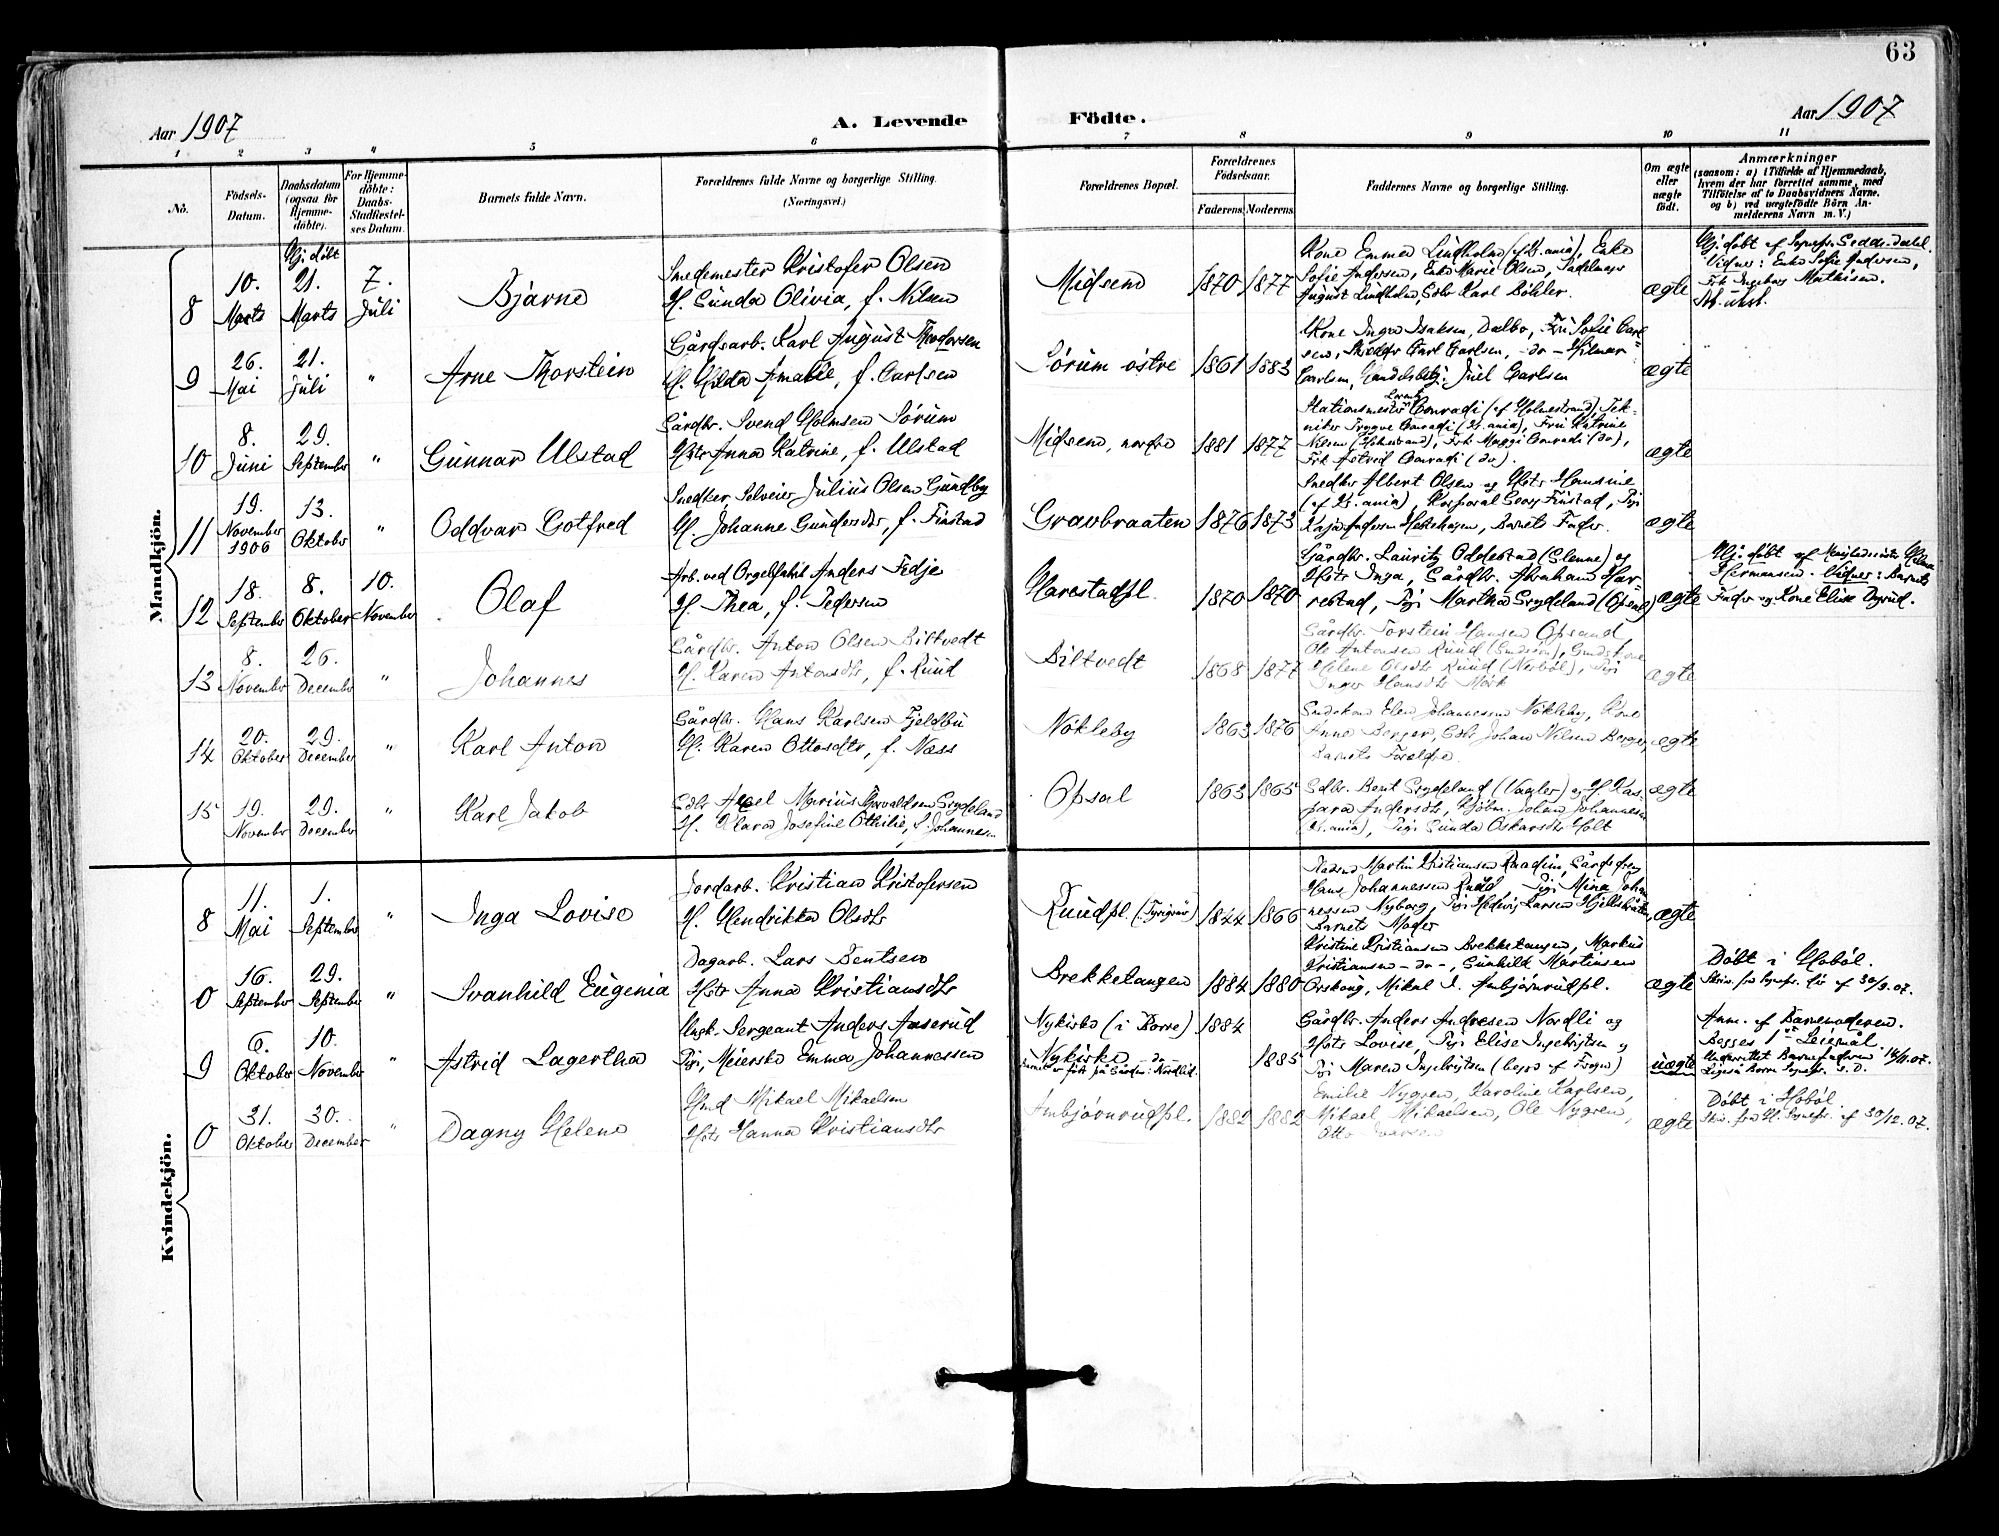 63
Aar 1907
A. Levende Födte.
Aar 1907
1 2 3 4 5 6 7 8 9 10 11
No.
Födsels-Datum.
Daabsdatum (ogsaa for Hjemmedöbte).
For Hjemmedöbte: Daabs-Stadfæstelses Datum.
Barnets fulde Navn.
Forældrenes fulde Navne og borgerlige Stilling.
(Næringsvei.)
Forældrenes Bopæl.
Forældrenes Födselsaar.
Faderens Moderens
Faddernes Navne og borgerlige Stilling.
Om ægte eller uægte födt.
Anmærkninger
(saasom: a) i Tilfælde af Hjemmedaab,
hvem der har forrettet samme, med
Tilföielse af to Daabsvidners Navne.
og b) ved uægtefödte Börn An-
melderens Navn m. V.)
Mandkjön.
8
10. Marts
Hj. døbt 21. Marts
7. Juli
Bjarne
Smedemester Kristofer Olsen
H. Gunda Olivia, f. Nilsen
Midsem
1870 1877
Kone Emma Lindholm (af Kr.ania), Enke
Sofie Andersen, Enke Marie Olsen, Sadelmager
August Lindholm, Sdbr Karl Böhler.
ægte
Hj. døbt af Sognepr.
Vidner: Enke Sofie Andersen,
Frk Ingeborg Mathisen.
9
26. Mai
21. Juli
"
Arne Thorstein
Gårdsarb. Karl August Theodorsen
H. Hilda Amalie, f. Carlsen
Sørum østre
1861 1883
Kone Inga Isaksen, Dælbo, Fru Sofie Carl-
sen, Carl Carlsen, - do - Hilmar
Carlsen, Juel Carlsen
ægte
10
8. Juni
29. September
"
Gunnar Ulstad
Gårdbr. Svend Holmsen Sørum
Hstr Anna Katrine, f. Ulstad
Midsem, nordre
1881 1877
Stationsmester Conradi (af Holmestrand), Tek-
niker Trygve Conradi (Kr.ania), Fru Katrine
Nilsen (Holmestrand), Frk Maggi Conradi (do),
Frk Astrid Conradi (do).
ægte
11
19. November 1906
13. Oktober
"
Oddvar Gotfred
Snedker Julius Olsen Gundby
H. Johanne Gundersdtr, f. Finstad
Gravbraaten
1876 1873
Snedker Albert Olsen og Hstr Hansine
(af Kr.ania), Korporal Georg Finstad, Pige
Kaja Andersen Barnets Fader.
ægte
12
18. September
8. Oktober
10. November
Olaf
Arb. ved Orgelfabrik Anders Fedje
H. Thea, f. Pedersen
Harestadpl.
1870 1870
Gårdbr. Lauritz Oddestad (Glenne) og
Hstr Inga, Gårdbr. Abraham Har-
restad, Pige Martha Grydeland
ægte
Hj. døbt af
Hermansen. Vidner: Barnets
Fader og Kone Elise Dyrud.
13
8. November
26. December
"
Johannes
Gårdbr. Anton Olsen Biltvedt
H. Karen Antonsdtr, f. Ruud
Biltvedt
1868 1877
Gårdbr. Torstein Hansen Opsand
Ole Antonsen Ruud
Helene Olsdtr Ruud
Inger Hansdtr Mørk
ægte
14
20. Oktober
29. December
"
Karl Anton
Gårdbr. Hans Karlsen Fjeldbu
H. Karen Ottosdtr, f. Næss
Nökleby
1863 1876
Johannesen Nökleby, Kone
Anna Berger, Sdbr Johan Nilsen Berger,
Barnets Forældre.
ægte
15
19. November
29. December
"
Karl Jakob
Sdbr Axel Marius Thorvaldsen Grydeland
H. Klara Josefine Othilie, f. Johannesen
Opsal
1863 1865
Sdbr. Berit Grydeland (Vagler) og H Kas-
para Andersdtr, Kjöbm. Johan Johannesen
(Kr.ania), Pige Gunda Oskarsdtr Holt
ægte
Kvindekjön.
8
11. Mai
1. September
"
Inga Lovise
Jordarb. Kristian Kristofersen
H. Hendrikke Olsdtr
Ruudpl.
1844 1866
Martin Kristiansen
Hans Johannessen Ruud Pige Mina Johan-
nessen Nyborg, Pige Hedvig Larsen
Barnets Moder
ægte
0
16. September
29. September
"
Svanhild Eugenia
Dagarb. Lars Bentsen
Hstr Anna Kristiansdtr
Brekketangen
1884 1880
Kristine Kristiansen Brekketangen, Markus
Kristiansen - do -, Gunhild Martinsen
Orskoug, Mikal I. Ambjørnrudpl.
ægte
Døbt i Hobøl.
Skriv. fra Sognepr. dér af 30/9.07.
9
6. Oktober
10. November
"
Astrid Lagertha
Ungk. Sergeant Anders Aaserud
Pige, Meierske Emma Johannessen
Nykirke (i Borre) 1884
Nykirke - do -
1885
Gårdbr. Anders Andresen Nordli og
Hstr Lovise, Pige Elise Ingebrigtsen og
Pige Maren Ingebrigtsen
uægte
Anm. af Barnemoderen.
Begges 1ste Leiermål.
Underrettet Barnefaderen 14/11.07.
0
31. Oktober
30. December
"
Dagny Helene
Hmd Mikael Mikaelsen
Hstr Hanna Kristiansdtr
Ambjørnrudpl.
1882 1882
Emilie Nygren, Karoline Karlsen,
Mikael Mikaelsen, Ole Nygren,
Otto Ivarsen
ægte
Døbt i Hobøl
Skriv. fra Hr. Sognepr. af 30/12.07.